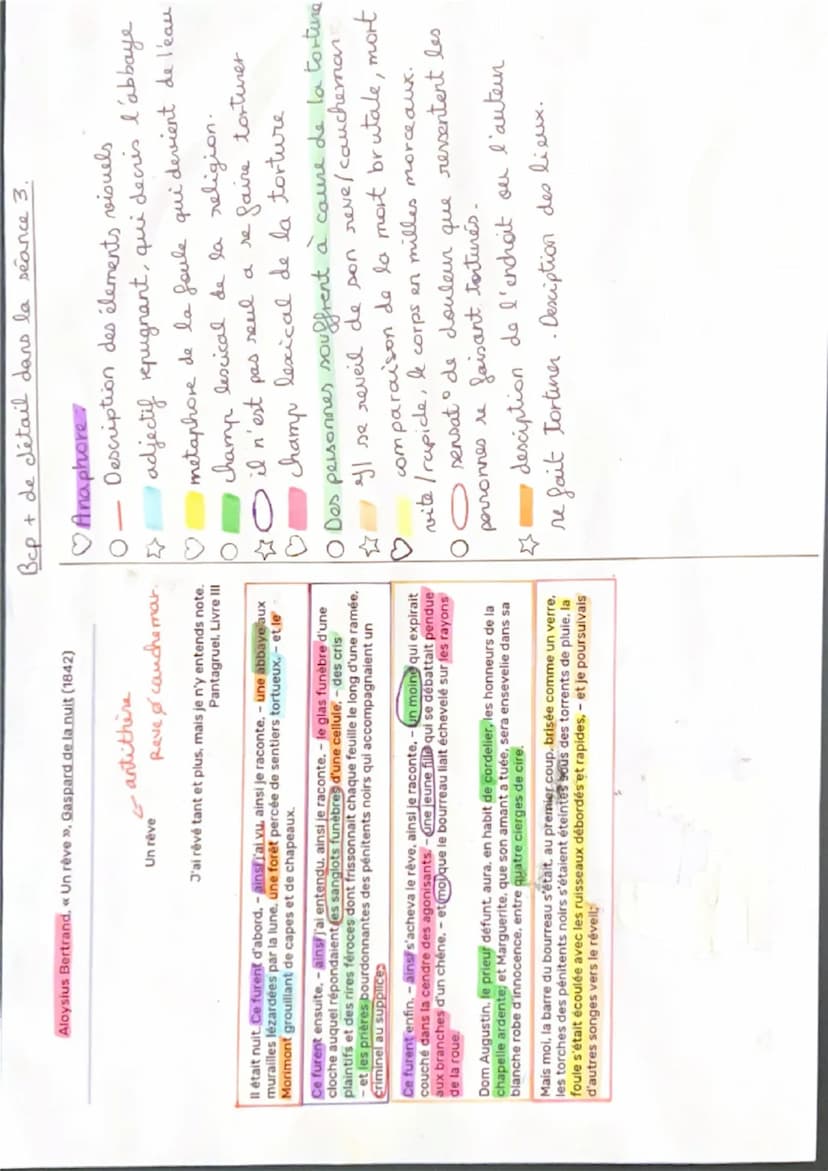 Bcp + de détail dans la séance 3.
Aloysius Bertrand, « Un rêve », Gaspard de la nuit (1842)
← antithèse
Reve ≠ cauchemar.
Un rêve
J'ai rêvé tant et plus, mais je n'y entends note.
Pantagruel, Livre III
Il était nuit. Ce furent d'abord, – ainsi j'ai vu, ainsi je raconte, – une abbaye aux
murailles lézardées par la lune, une forêt percée de sentiers tortueux, – et le
Morimont grouillant de capes et de chapeaux.
Ce furent ensuite, – ainsi j'ai entendu, ainsi je raconte, – le glas funèbre d'une
cloche auquel répondaient les sanglots funèbres d'une cellule, – des cris
plaintifs et des rires féroces dont frissonnait chaque feuille le long d'une ramée,
– et les prières bourdonnantes des pénitents noirs qui accompagnaient un
criminel au supplice.
Ce furent enfin, – ainsi s'acheva le rêve, ainsi je raconte, – un moine qui expirait
couché dans la cendre des agonisants, – une jeune fille qui se débattait pendue
aux branches d'un chêne, – et moi que le bourreau liait échevelé sur les rayons
de la roue.
Dom Augustin, le prieur défunt, aura, en habit de cordelier, les honneurs de la
chapelle ardente; et Marguerite, que son amant a tuée, sera ensevelie dans sa
blanche robe d'innocence, entre quatre cierges de cire.
Mais moi, la barre du bourreau s'était, au premier coup, brisée comme un verre,
les torches des pénitents noirs s'étaient éteintes sous des torrents de pluie, la
foule s'était écoulée avec les ruisseaux débordés et rapides, – et je poursuivais
d'autres songes vers le réveil.
♡ Anaphore:
○ — Description des élements visuels
☆ adjectif repugnant, qui decris l'abbaye
♡ metaphore de la foule qui devient de l'eau
○ champ lescical de la religion.
☆ il n'est pas seul a se faire torturer
♡ champ lexical de la torture
○ Des personnes souffrent à cause de la torture
☆ Il se reveil de son reve/cauchemar
♡ comparaison de la mort brutale, mort
vite/rapide, le corps en milles morceaux.
○ sensat° de douleur que ressentent les
personnes se faisant torturés.
☆ desciption de l'endroit ou l'auteur
se fait torturer. Desciption des lieux.